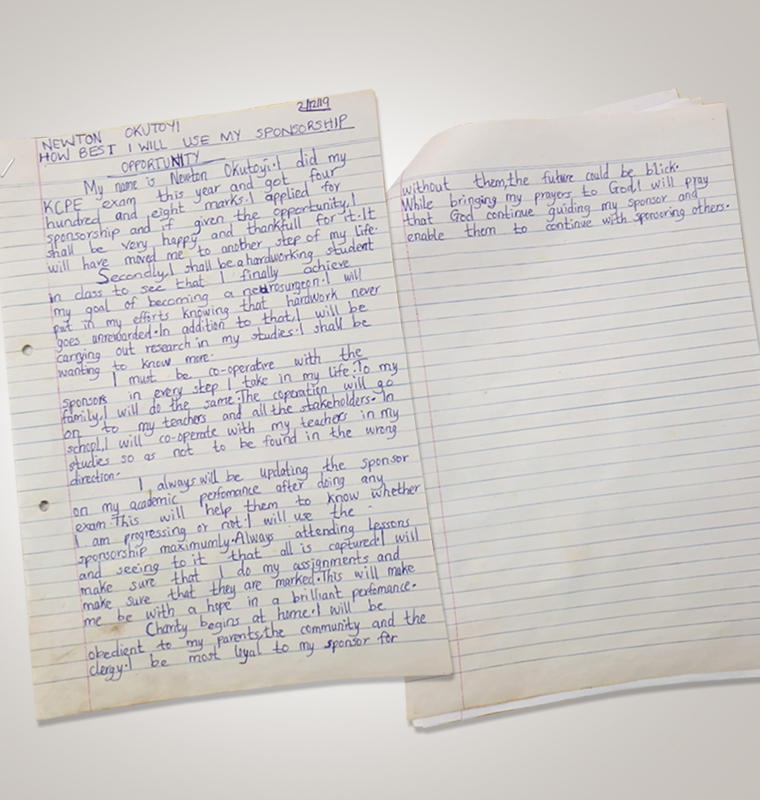 2/12/19
NEWTON OKUTOYI
HOW BEST I WILL USE MY SPONSORSHIP
OPPORTUNITY
My name is Newton Okutoyi. I did my
KCPE exam this year and got four
hundred and eight marks. I applied for
sponsorship and if given the opportunity, I
shall be very happy and thankfull for it. It
will have moved me to another step of my life.
Secondly, I shall be a hardworking student
in class to see that I finally achieve
my goal of becoming a neurosurgeon. I will
put in my efforts knowing that hardwork never
goes unrewarded. In addition to that, I will be
carrying out research in my studies. I shall be
wanting to know more.
I must be co-operative with the
sponsors in every step I take in my life. To my
family, I will do the same. The coperation will go
on to my teachers and all the stakeholders. In
school, I will co-operate with my teachers in my
studies so as not to be found in the wrong
direction.
I always will be updating the sponsor
on my academic perfomance after doing any
exam. This will help them to know whether
I am progressing or not. I will use the
sponsorship maximumly. Always attending lessons
and seeing to it that all is captured. I will
make sure that I do my assignments and
make sure that they are marked. This will make
me be with a hope in a brilliant perfomance.
Charity begins at home. I will be
obedient to my parents, the community and the
clergy. I be most loyal to my sponsor for
without them, the future could be blick.
While bringing my prayers to God, I will pray
that God continue guiding my sponsor and
enable them to continue with sponsoring others.